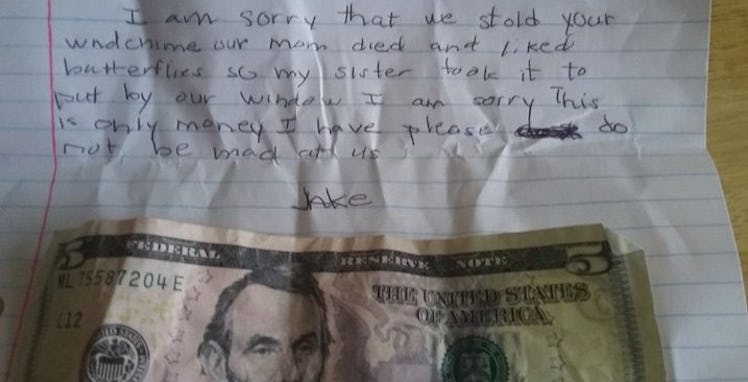 I am sorry that we stold your
windchime our mom died and liked
butterflies so my sister took it to
put by our window I am sorry This
is only money I have please do
not be mad at us
Jake
5 FEDERAL RESERVE NOTE 5
ML 75587204 E
L12
THE UNITED STATES
OF AMERICA